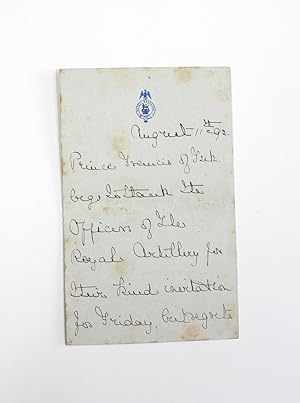 August 11th 92.
Prince Francis of Teck
begs to thank the
Officers of the
Royal Artillery for
their kind invitation
for Friday, but regrets